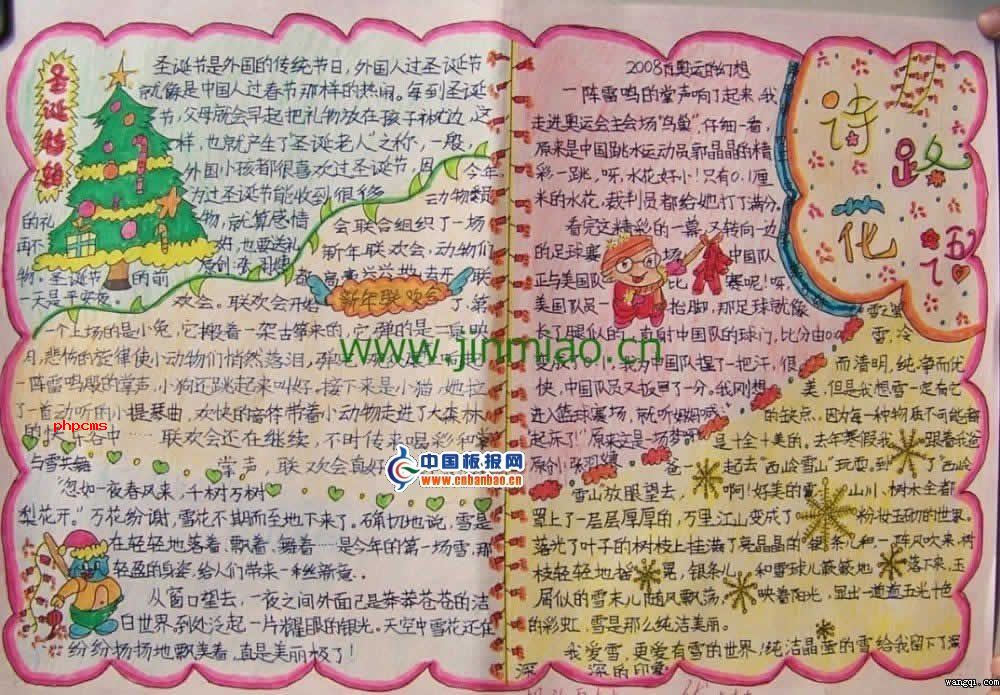 圣诞特辑
圣诞节是外国的传统节日,外国人过圣诞节
就像是中国人过春节那样的热闹。每到圣诞
节,父母就会早起把礼物放在孩子枕边,这
样,也就产生了"圣诞老人"之称,一般,
外国小孩都很喜欢过圣诞节,因
为过圣诞节能收到很多
的礼物,就算感情
再不好,也要送礼
物。圣诞节的前
一天是平安夜
今年
动物委员
会联合组织了一场
新年联欢会,动物们
都高高兴兴地去开联
新年联欢会
欢会。联欢会开始了,第
一个上场的是小兔,它搬着一架古筝来的,它弹的是二泉映
月,悲伤的旋律使小动物们悄然落泪,
一阵雷鸣般的掌声,小狗还跳起来叫好。接下来是小猫,她拉
了一首动听的小提琴曲,欢快的音符带着小动物走进了大森林
的快乐谷中……联欢会还在继续,不时传来喝彩和
掌声,联欢会真好
与雪共舞
"忽如一夜春风来,千树万树
梨花开。"万花纷谢,雪花不期而至地下来了。确切地说,雪是
在轻轻地落着、飘着、舞着……是今年的第一场雪,那
轻盈的身姿,给人们带来一丝新意。
从窗口望去,一夜之间外面已是莽莽苍苍的洁
白世界,到处泛起一片耀眼的银光。天空中雪花还在
纷纷扬扬地飘美着,真是美丽极了!
2008奥运的幻想
一阵雷鸣的掌声响了起来,我
走进奥运会主会场"鸟巢",仔细一看,
原来是中国跳水运动员郭晶晶的精
彩一跳,呀,水花好小!只有0.1厘
米的水花,裁判员都给她打了满分。
看完这精彩的一幕,又转向一边
的足球赛场,中国队
正与美国队比赛呢!呀,
美国队员一抬脚,那足球就像
长了眼似的一直射中国队的球门,比分由0:0
变成了0:1,我为中国队捏了一把汗,很
快,中国队员又扳回了一分。我刚想
进入篮球赛场,就听妈妈喊
起床了!"原来这是一场梦呀
诗
花
雪,冷
而清明,纯净而优
美,但是我想雪一定有它
的缺点,因为每一种物质不可能都
是十全十美的。去年寒假我跟着我爸
爸一起去"西岭雪山"玩耍,到了西岭
雪山放眼望去,啊!好美的雪,山川、树木全都
罩上了一层层厚厚的,万里江山变成了粉妆玉砌的世界。
落光了叶子的树枝上挂满了亮晶晶的银条儿和一阵风吹来,树
枝轻轻地摇晃,银条儿和雪球儿簌簌地落下来,玉
屑似的雪末儿随风飘荡,映着阳光,显出一道道五光十色
的彩虹,雪是那么纯洁美丽。
我爱雪,更爱有雪的世界!纯洁晶莹的雪给我留下了深
深的印象
www.jinmiao.cn
phpcms
中国板报网
www.cnbanbao.cn
wangqi.com